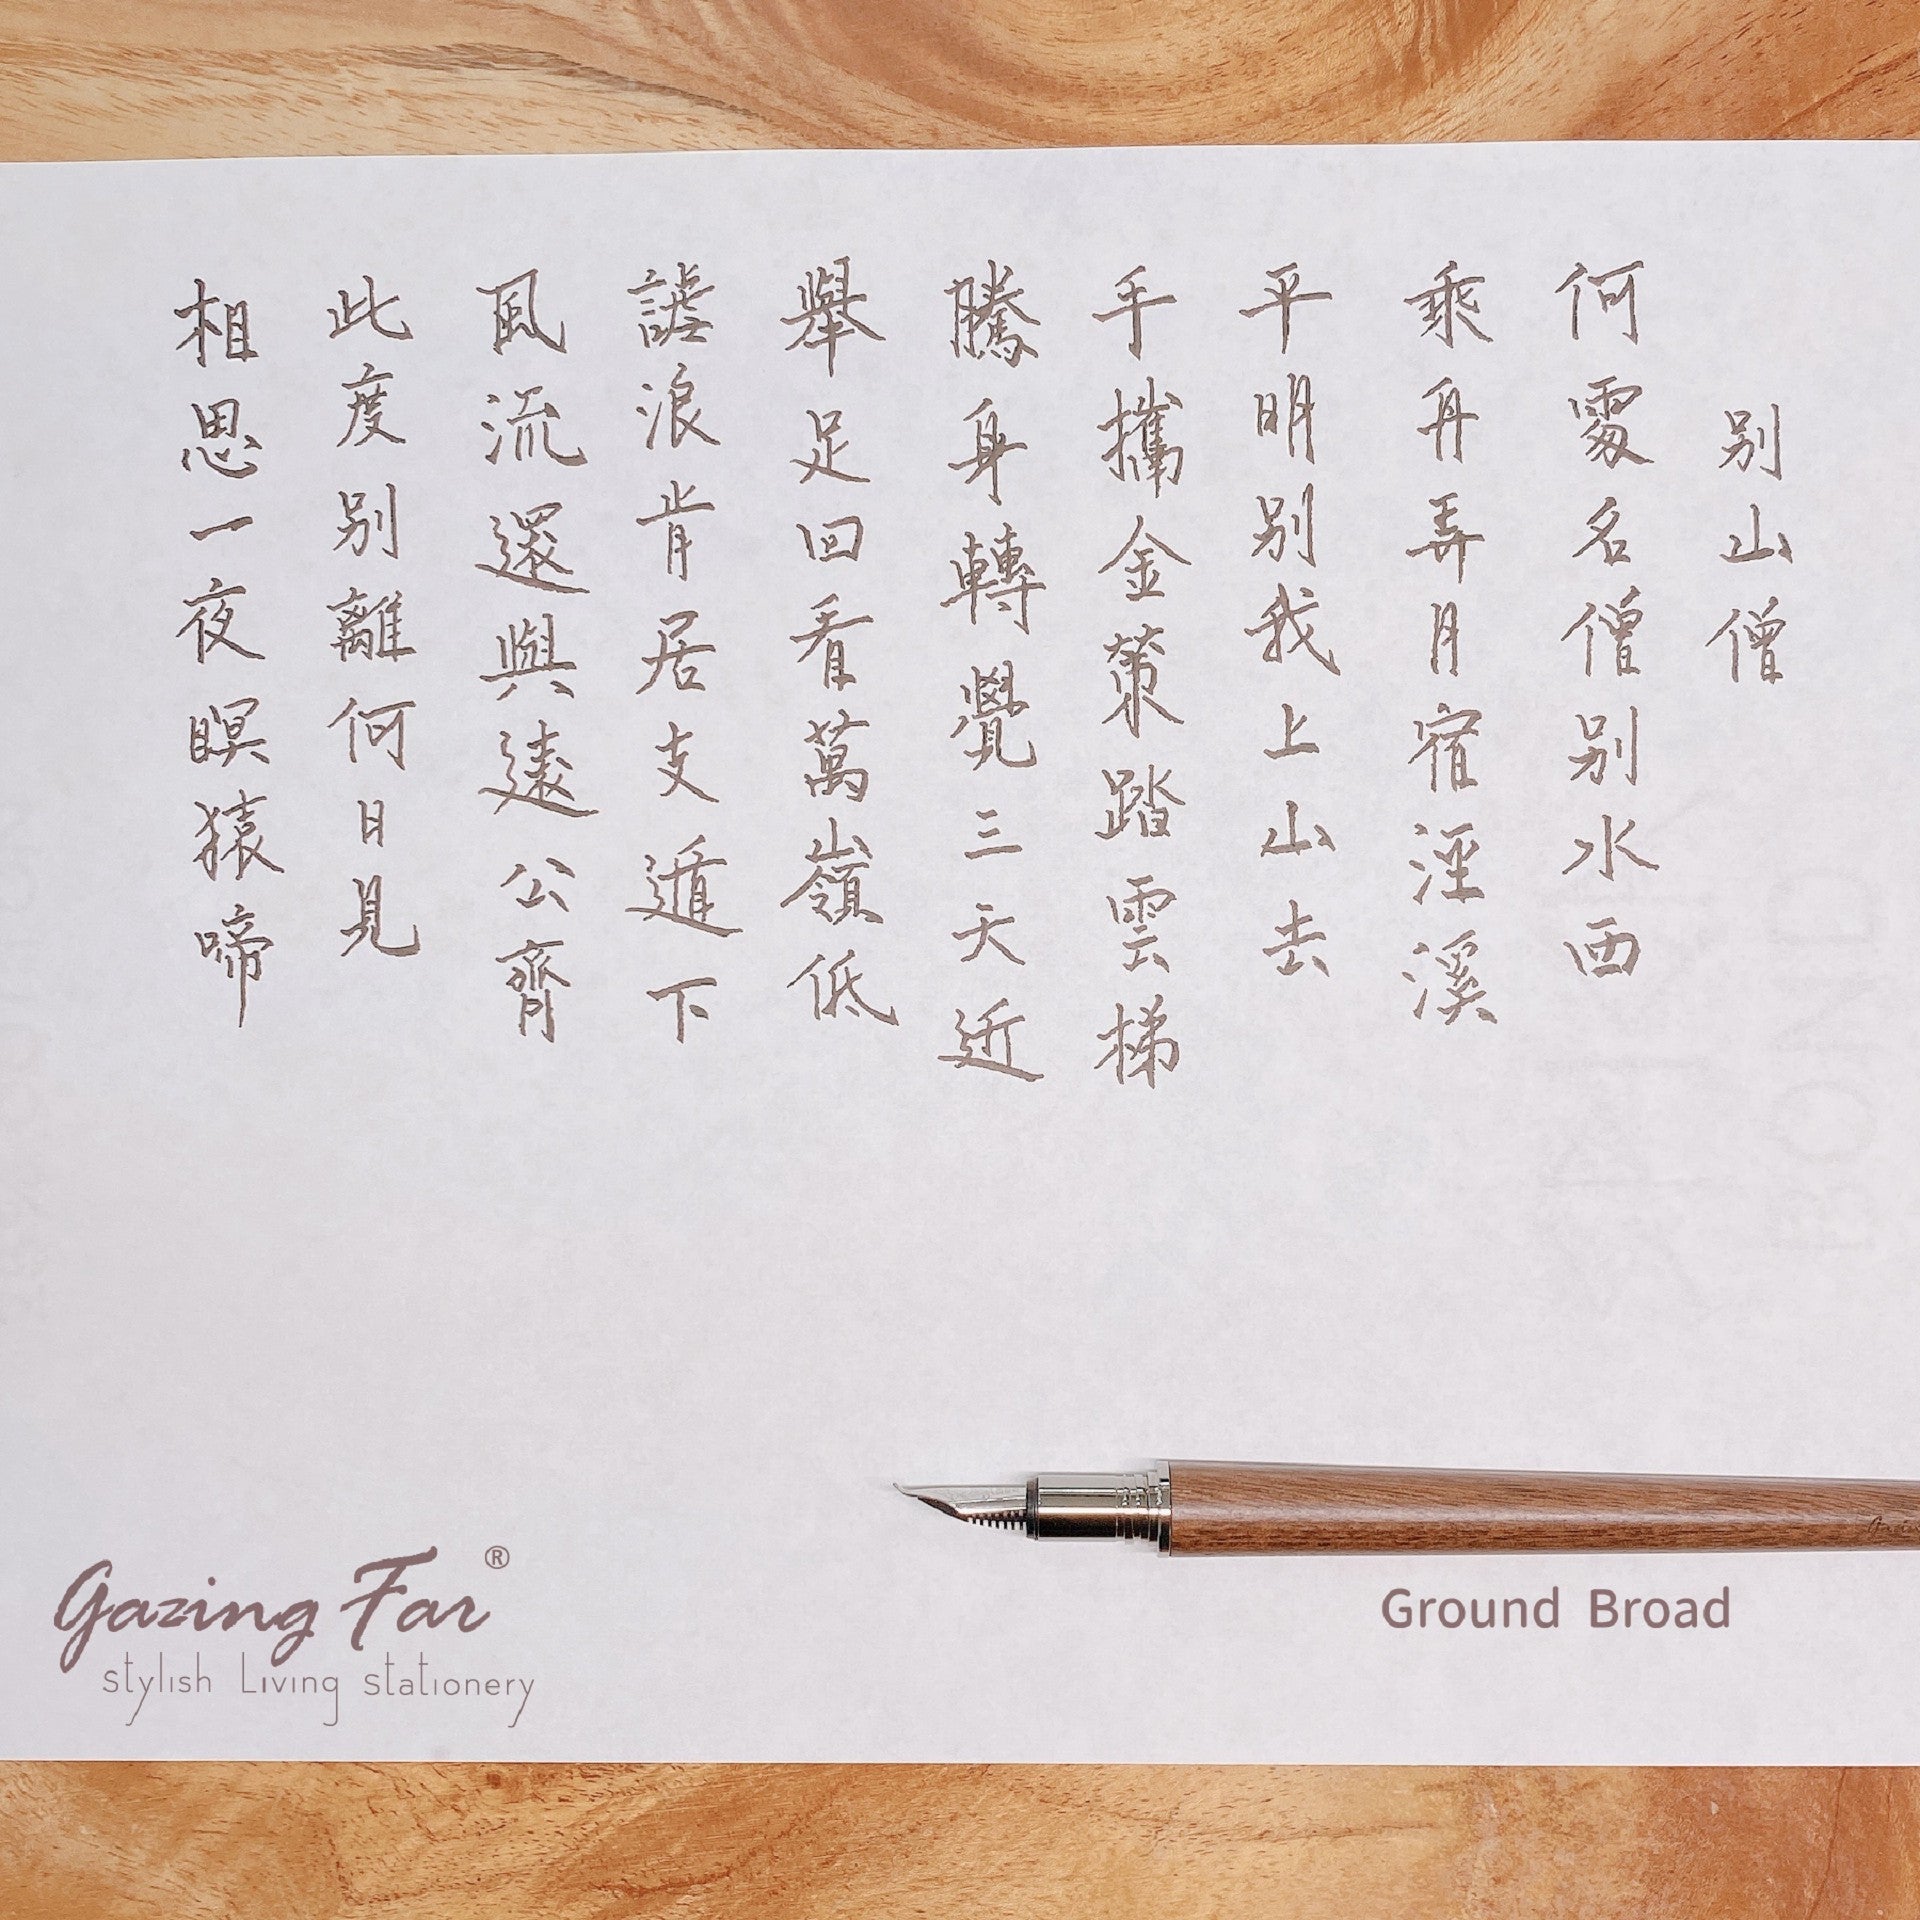 别山僧
何處名僧别水西
乘舟弄月宿涇溪
平明别我上山去
手攜金策踏雲梯
騰身轉覺三天近
舉足回看萬嶺低
謔浪肯居支遁下
風流還與遠公齊
此度别離何日見
相思一夜瞑猿啼
Gazing Far®
stylish Living stationery
Ground Broad